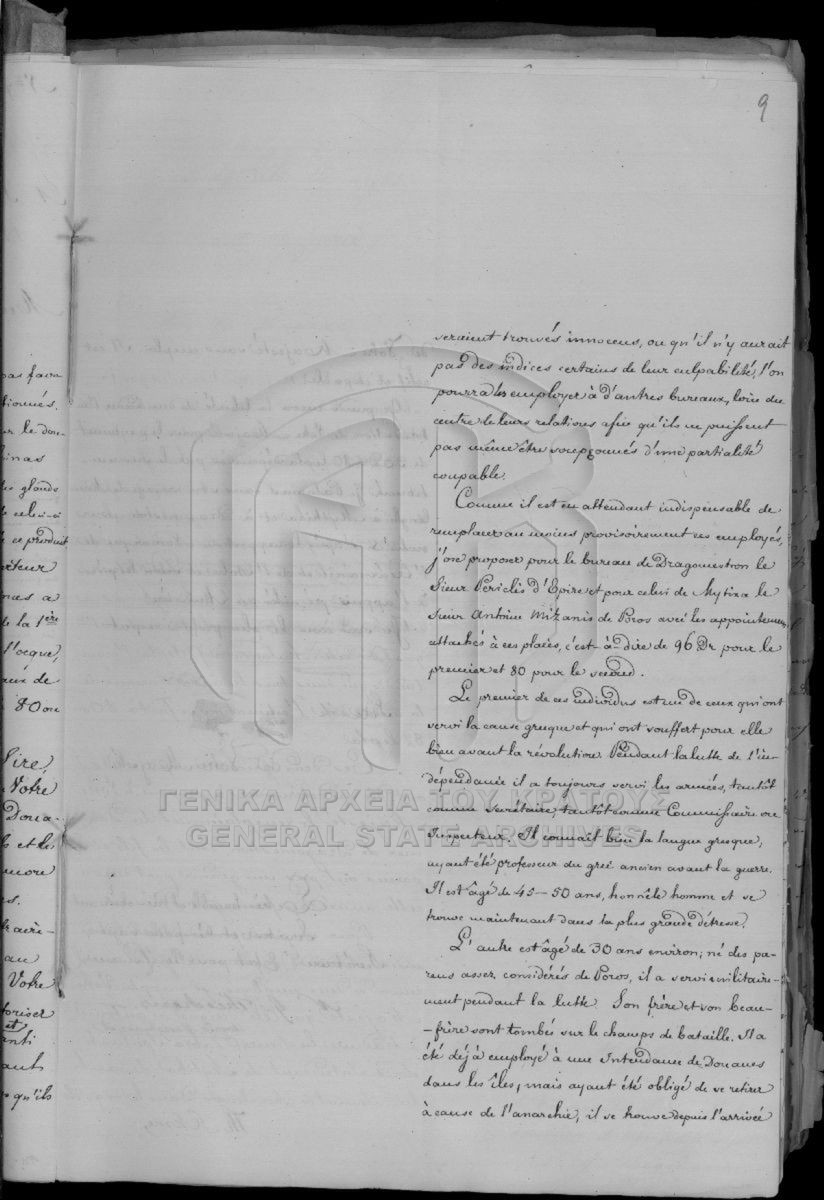 9
seraient trouvés innocens, ou qu'il n'y aurait
pas des indices certains de leur culpabilité, l'on
pourra les employer à d'autres bureaux, loin du
centre de leurs relations afin qu'ils ne puissent
pas même être soupçonnés d'une partialité
coupable.
Comme il est en attendant indispensable de
remplacer au moins provisoirement ces employés,
j'ose proposer pour le bureau de Dragomestron le
Sieur Periclès d'Epire et pour celui de Mytika le
Sieur Antoine Mizanis de Poros avec les appointemens
attachés à ces places, c'est-à-dire de 96 Dr pour le
premier et 80 pour le second.
Le premier de ces individus est un de ceux qui ont
servi la cause grecque et qui ont souffert pour elle
bien avant la révolution. Pendant la lutte de l'in-
dépendance il a toujours servi les armées, tantôt
comme Secrétaire, tantôt comme Commissaire ou
Inspecteur. Il connaît bien la langue grecque,
ayant été professeur du grec ancien avant la guerre.
Il est âgé de 45-50 ans, honnête homme et se
trouve maintenant dans la plus grande détresse.
L'autre est âgé de 30 ans environ; né des pa-
rens assez considérés de Poros, il a servi militaire-
ment pendant la lutte. Son frère et son beau-
-frère sont tombés sur le champs de bataille. Il a
été déjà employé à une Intendance de Douanes
dans les îles, mais ayant été obligé de se retirer
à cause de l'anarchie, il se trouve depuis l'arrivée
pas fava
tionnés.
le dou-
inas
glands
celui-ci
ce produit
nas a
de la 1ère
l'ocque,
80
Sire,
Votre
Doua-
et les
au
Votre
toriser
et
qu'ils
ΓΕΝΙΚΑ ΑΡΧΕΙΑ ΤΟΥ ΚΡΑΤΟΥΣ
GENERAL STATE ARCHIVES